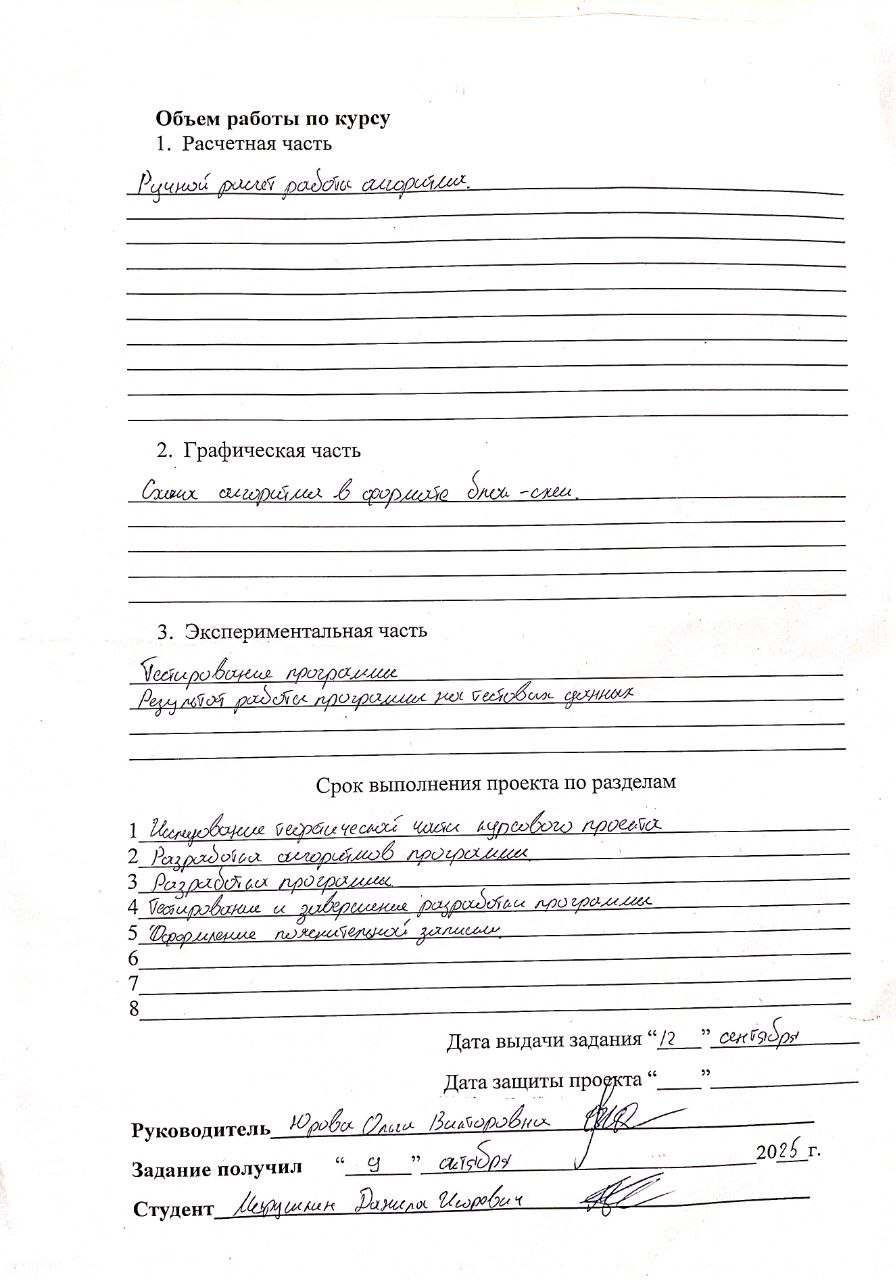 Объем работы по курсу
1. Расчетная часть
Ручной расчёт работы алгоритма.
2. Графическая часть
Схема алгоритма в формате блок-схем.
3. Экспериментальная часть
Тестирование программы
Результат работы программы на тестовых данных
Срок выполнения проекта по разделам
1 Исследование теоретической части курсового проекта
2 Разработка алгоритмов программы
3 Разработка программы
4 Тестирование и завершение разработки программы
5 Оформление пояснительной записки
6
7
8
Дата выдачи задания “12” сентября
Дата защиты проекта “____”
Руководитель Юрова Ольга Викторовна
Задание получил “9” октября 2025 г.
Студент Данила Игоревич